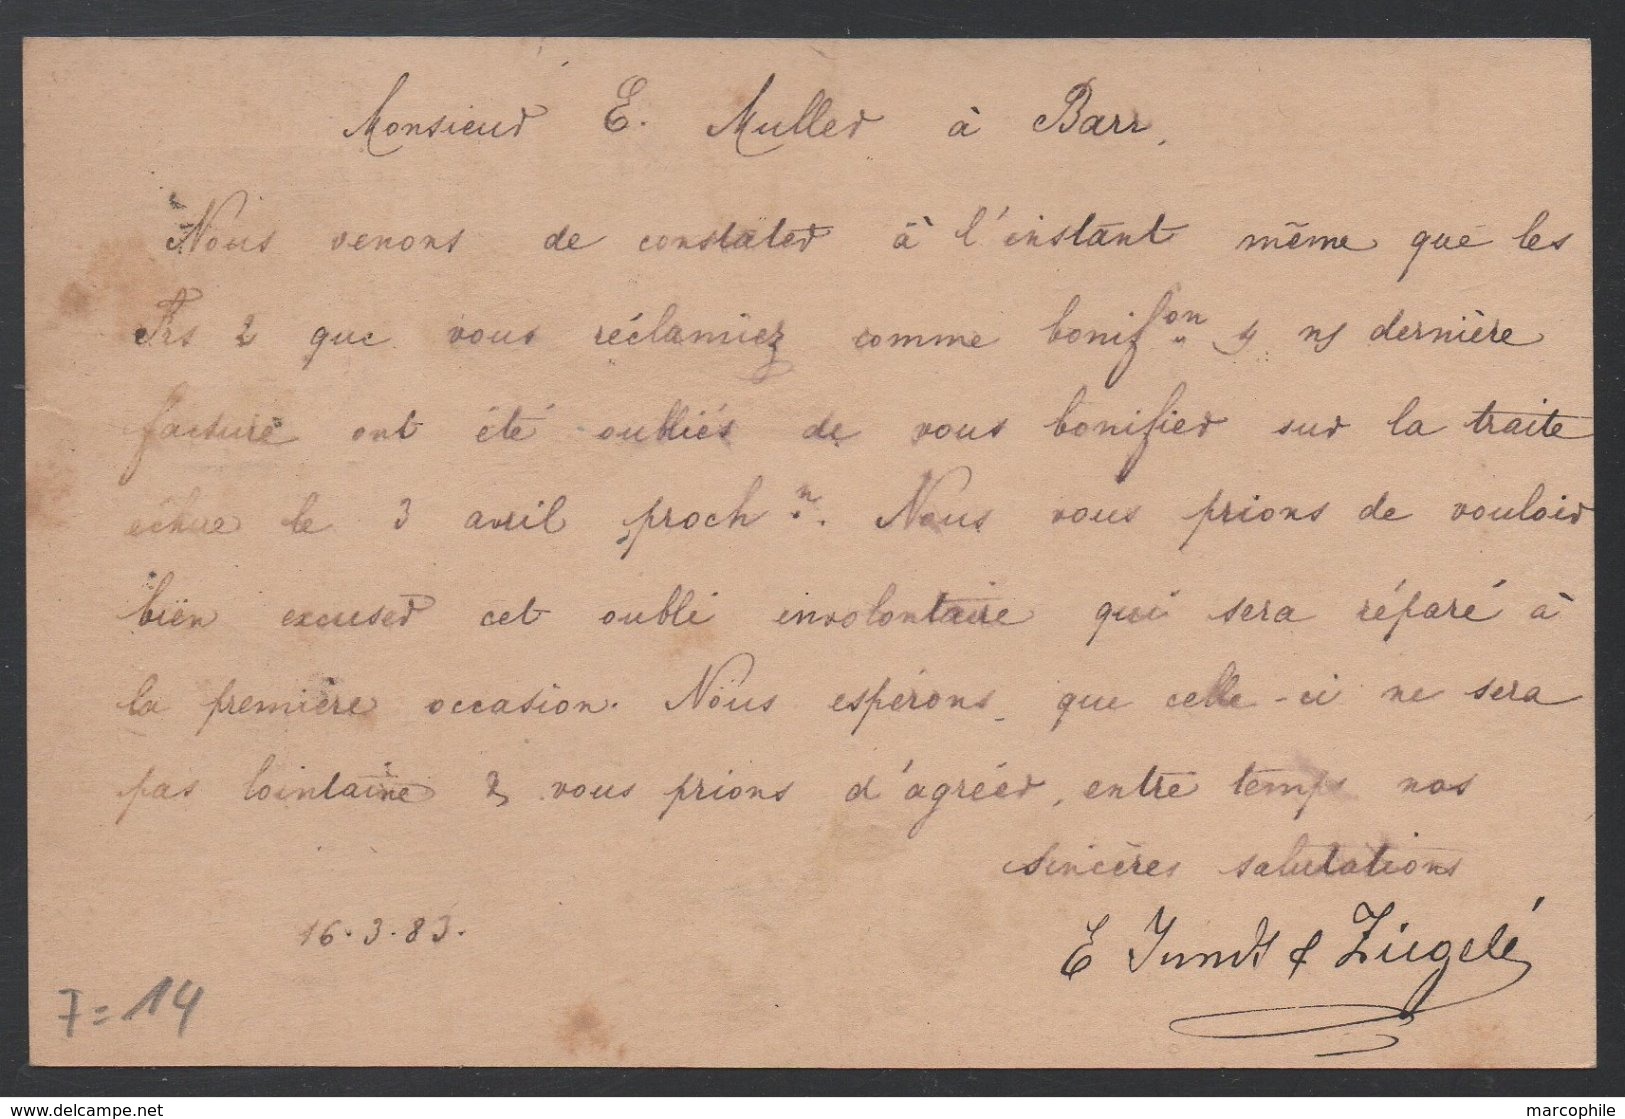 Monsieur E. Muller à Barr,
Nous venons de constater à l'instant même que les
Frs 2 que vous réclamiez comme bonif.on s/ ns dernière
facture ont été oubliés de vous bonifier sur la traite
échue le 3 avril proch.n. Nous vous prions de vouloir
bien excuser cet oubli involontaire qui sera réparé à
la première occasion. Nous espérons que celle-ci ne sera
pas lointaine & vous prions d'agréer, entre temps nos
sincères salutations
16.3.83.
E Jundt & Ziegelé
7=14
www.delcampe.net
marcophile